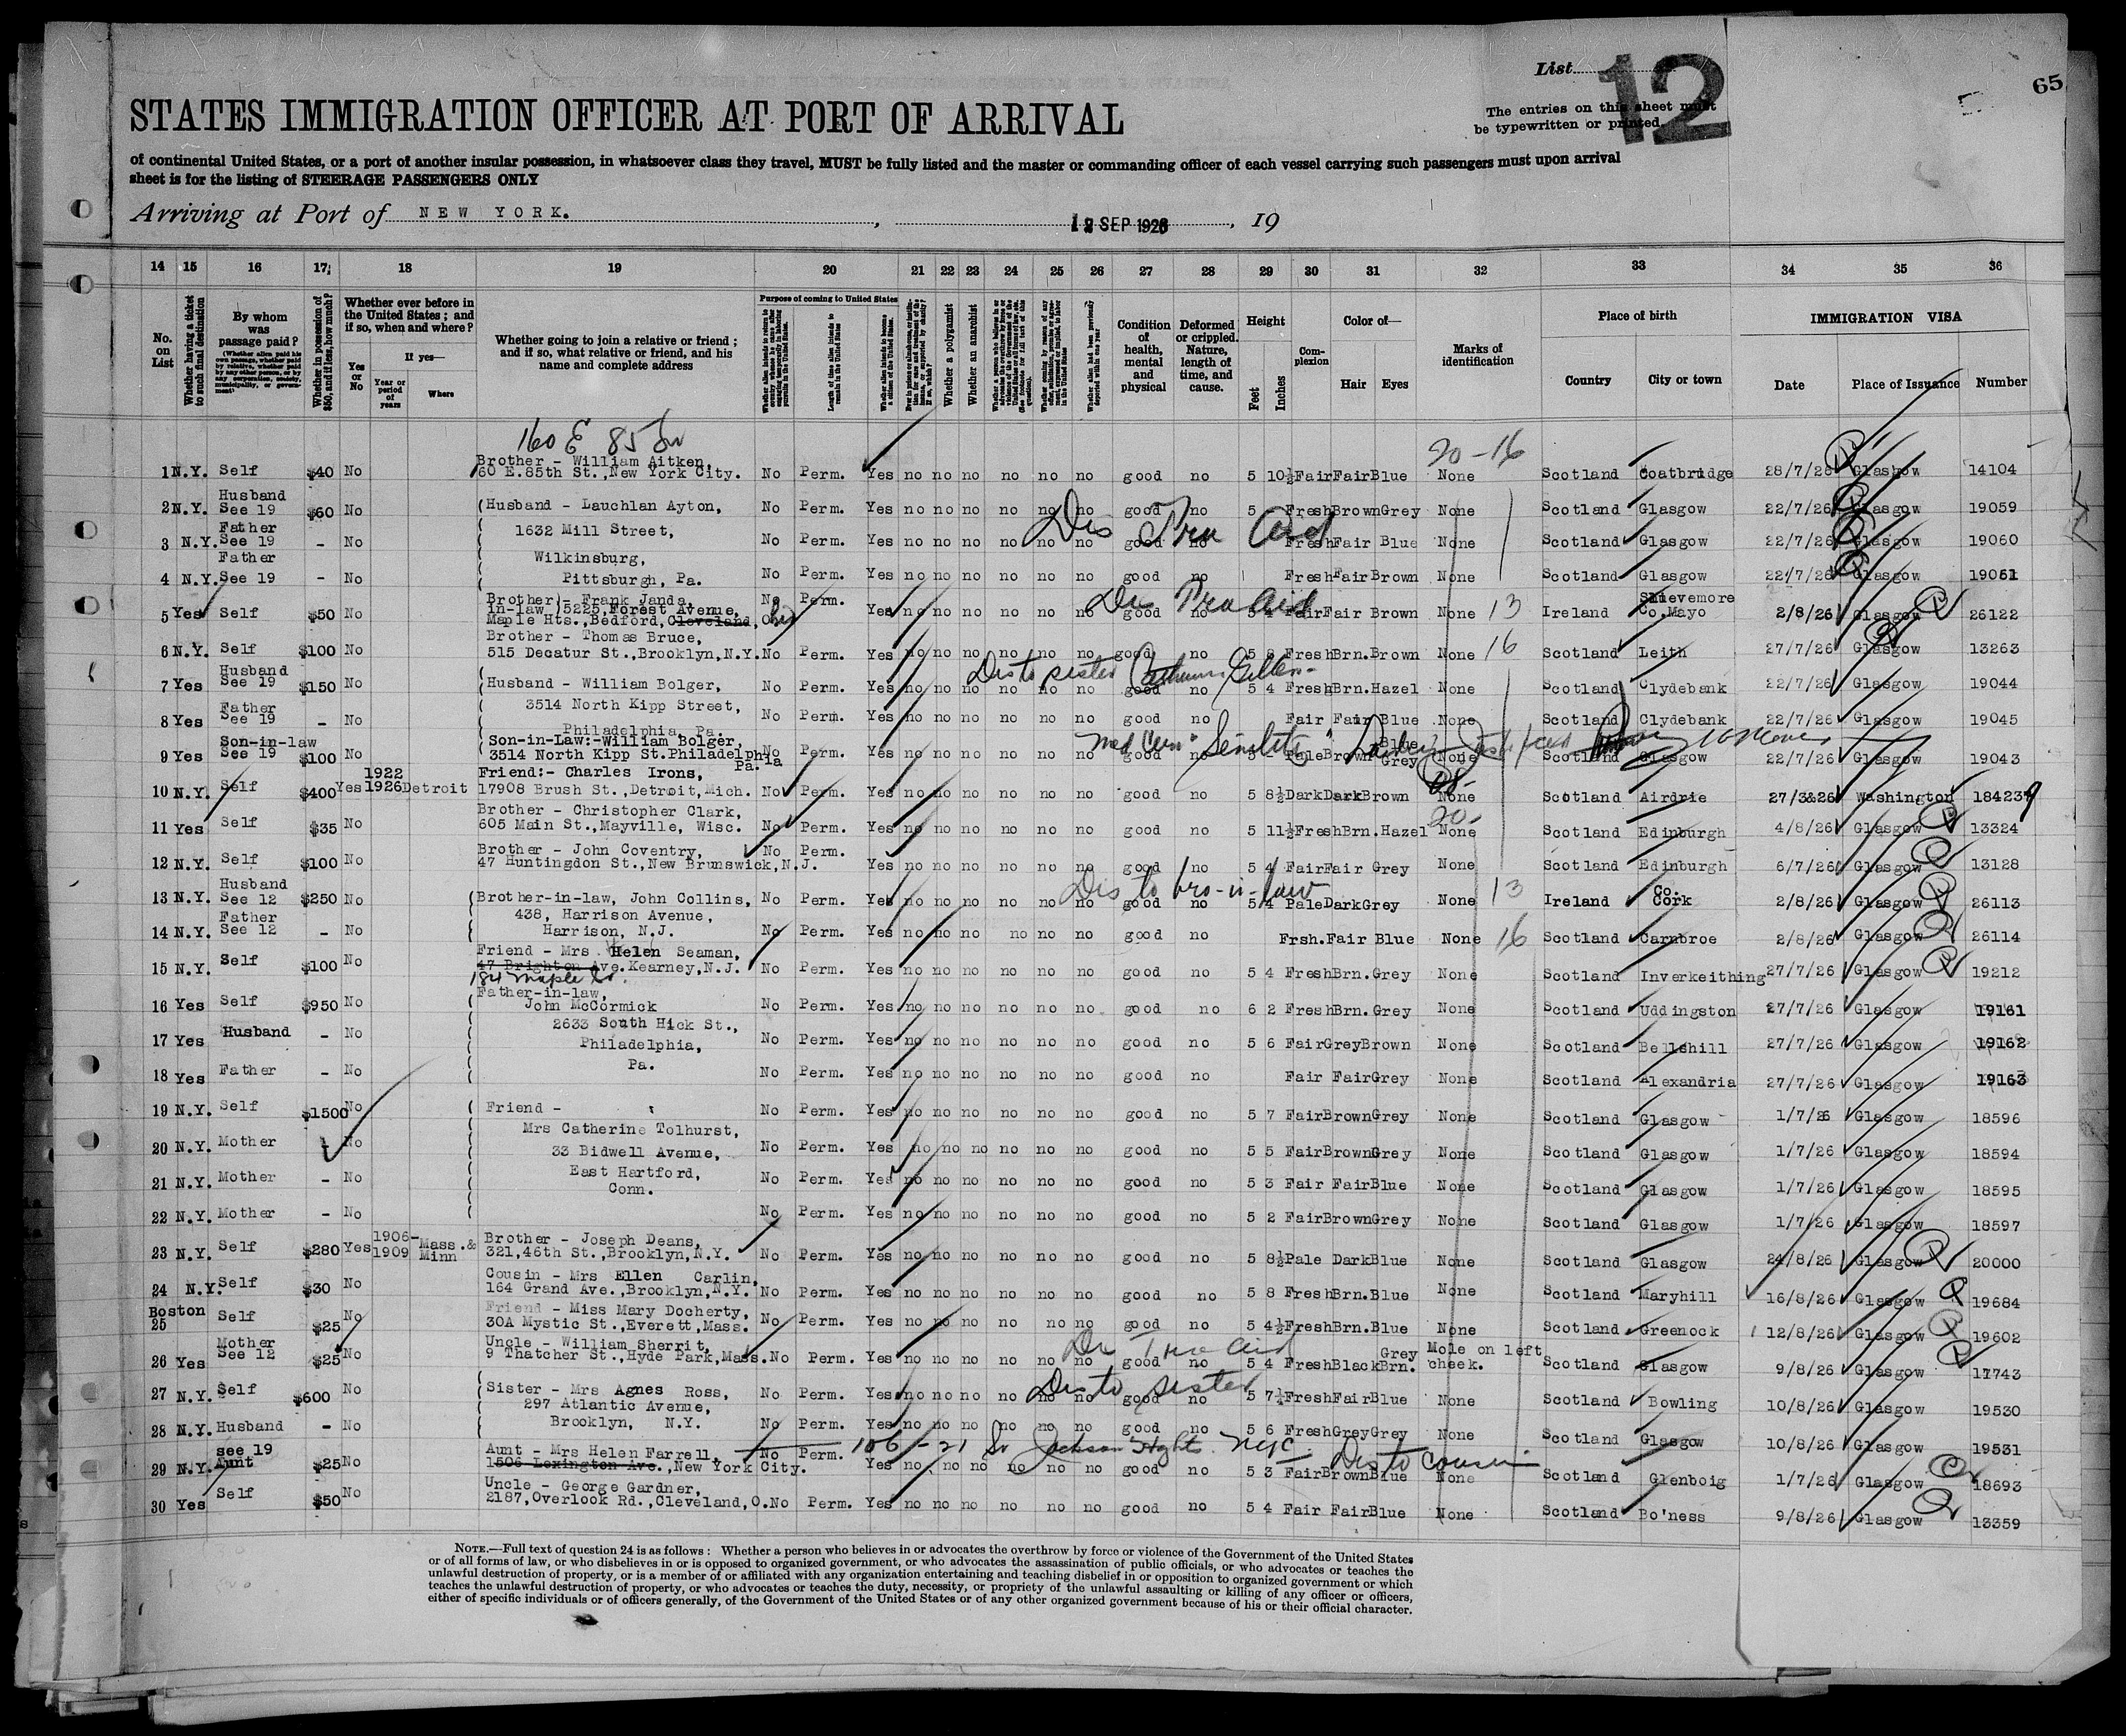 List 12
65
The entries on this sheet must
be typewritten or printed.
STATES IMMIGRATION OFFICER AT PORT OF ARRIVAL
of continental United States, or a port of another insular possession, in whatsoever class they travel, MUST be fully listed and the master or commanding officer of each vessel carrying such passengers must upon arrival
sheet is for the listing of STEERAGE PASSENGERS ONLY
Arriving at Port of NEW YORK. , SEP 1926 , 19
14 15 16 17 18 19 20 21 22 23 24 25 26 27 28 29 30 31 32 33 34 35 36
No. on List
Whether having a ticket to such final destination
By whom was passage paid?
(Whether alien paid his own passage, whether paid by relative, whether paid by any other person, or by any corporation, society, municipality, or government)
Whether in possession of $50, and if less, how much?
Whether ever before in the United States; and if so, when and where?
Yes or No
If yes—
Year or period of years
Where
Whether going to join a relative or friend; and if so, what relative or friend, and his name and complete address
Purpose of coming to United States
Length of time alien intends to remain in the United States
Whether alien intends to become a citizen of the United States.
Whether a polygamist
Whether an anarchist
Whether alien had been previously deported within one year
Condition of health, mental and physical
Deformed or crippled. Nature, length of time, and cause.
Height
Feet
Inches
Complexion
Color of—
Hair
Eyes
Marks of identification
Place of birth
Country
City or town
IMMIGRATION VISA
Date
Place of Issuance
Number
160 E 85
20-16
1 N.Y. Self $40 No Brother - William Aitken, 60 E.85th St., New York City. No Perm. Yes no no no no no no good no 5 10½ Fair Fair Blue None Scotland Coatbridge 28/7/26 Glasgow 14104
2 N.Y. Husband See 19 $60 No Husband - Lauchlan Ayton, No Perm. Yes no no no no no no good no 5 Fresh Brown Grey None Scotland Glasgow 22/7/26 Glasgow 19059
3 N.Y. Father See 19 - No 1632 Mill Street, No Perm. Yes no no no no no no good no Fresh Fair Blue None Scotland Glasgow 22/7/26 Glasgow 19060
Wilkinsburg,
4 N.Y. Father See 19 - No Pittsburgh, Pa. No Perm. Yes no no no no no no good no Fresh Fair Brown None Scotland Glasgow 22/7/26 Glasgow 19061
5 Yes Self $50 No Brother in-law)- Frank Janda, 5225, Forest Avenue, Maple Hts., Bedford, Cleveland, Ohio No Perm. Yes no no no no no no good no 5 4 Fair Fair Brown None 13 Ireland Slievemore Co.Mayo 2/8/26 Glasgow 26122
6 N.Y. Self $100 No Brother - Thomas Bruce, 515 Decatur St., Brooklyn, N.Y. No Perm. Yes no no no no no no good no 5 8 Fresh Brn. Brown None 16 Scotland Leith 27/7/26 Glasgow 13263
Dis to sister
7 Yes Husband See 19 $150 No Husband - William Bolger, No Perm. Yes no no no no no no good no 5 4 Fresh Brn. Hazel None Scotland Clydebank 22/7/26 Glasgow 19044
3514 North Kipp Street,
8 Yes Father See 19 - No Philadelphia, Pa. No Perm. Yes no no no no no no good no Fair Fair Blue None Scotland Clydebank 22/7/26 Glasgow 19045
Med Cert "Senility"
9 Yes Son-in-law See 19 $100 No Son-in-Law:-William Bolger, 3514 North Kipp St. Philadelphia Pa. No Perm. Yes no no no no no no good no 5 - Pale Brown Blue Grey None Scotland Glasgow 22/7/26 Glasgow 19043
10 N.Y. Self $400 Yes 1922 1926 Detroit Friend:- Charles Irons, 17908 Brush St., Detroit, Mich. No Perm. Yes no no no no no no good no 5 8½ Dark Dark Brown None Scotland Airdrie 27/3&26 Washington 184237
20-
11 Yes Self $35 No Brother - Christopher Clark, 605 Main St., Mayville, Wisc. No Perm. Yes no no no no no no good no 5 11½ Fresh Brn. Hazel None Scotland Edinburgh 4/8/26 Glasgow 13324
12 N.Y. Self $100 No Brother - John Coventry, 47 Huntingdon St., New Brunswick, N.J. No Perm. Yes no no no no no no good no 5 4 Fair Fair Grey None Scotland Edinburgh 6/7/26 Glasgow 13128
Dis to bro-in-law
13 N.Y. Husband See 12 $250 No Brother-in-law, John Collins, No Perm. Yes no no no no no no good no 5 4 Pale Dark Grey None 13 Ireland Co. Cork 2/8/26 Glasgow 26113
438, Harrison Avenue,
14 N.Y. Father See 12 - No Harrison, N.J. No Perm. Yes no no no no no no good no Frsh. Fair Blue None 16 Scotland Carnbroe 2/8/26 Glasgow 26114
15 N.Y. Self $100 No Friend - Mrs Helen Seaman, 47 Brighton Ave. Kearney, N.J. No Perm. Yes no no no no no no good no 5 4 Fresh Brn. Grey None Scotland Inverkeithing 27/7/26 Glasgow 19212
184 Maple
16 Yes Self $950 No Father-in-law, John McCormick No Perm. Yes no no no no no no good no 6 2 Fresh Brn. Grey None Scotland Uddingston 27/7/26 Glasgow 19161
2633 South Hick St.,
17 Yes Husband - No Philadelphia, No Perm. Yes no no no no no no good no 5 6 Fair Grey Brown None Scotland Bellshill 27/7/26 Glasgow 19162
18 Yes Father - No Pa. No Perm. Yes no no no no no no good no Fair Fair Grey None Scotland Alexandria 27/7/26 Glasgow 19163
19 N.Y. Self $1500 No Friend - No Perm. Yes no no no no no no good no 5 7 Fair Brown Grey None Scotland Glasgow 1/7/26 Glasgow 18596
Mrs Catherine Tolhurst,
20 N.Y. Mother - No 33 Bidwell Avenue, No Perm. Yes no no no no no no good no 5 5 Fair Brown Grey None Scotland Glasgow 1/7/26 Glasgow 18594
21 N.Y. Mother - No East Hartford, Conn. No Perm. Yes no no no no no no good no 5 3 Fair Fair Blue None Scotland Glasgow 1/7/26 Glasgow 18595
22 N.Y. Mother - No No Perm. Yes no no no no no no good no 5 2 Fair Brown Grey None Scotland Glasgow 1/7/26 Glasgow 18597
23 N.Y. Self $280 Yes 1906-1909 Mass. & Minn Brother - Joseph Deans, 321, 46th St., Brooklyn, N.Y. No Perm. Yes no no no no no no good no 5 8½ Pale Dark Blue None Scotland Glasgow 24/8/26 Glasgow 20000
24 N.Y. Self $30 No Cousin - Mrs Ellen Carlin, 164 Grand Ave., Brooklyn, N.Y. No Perm. Yes no no no no no no good no 5 8 Fresh Brn. Blue None Scotland Maryhill 16/8/26 Glasgow 19684
25 Boston Self $25 No Friend - Miss Mary Docherty, 30A Mystic St., Everett, Mass. No Perm. Yes no no no no no no good no 5 4½ Fresh Brn. Blue None Scotland Greenock 12/8/26 Glasgow 19602
26 Yes Mother See 12 $25 No Uncle - William Sherrit, 9 Thatcher St., Hyde Park, Mass. No Perm. Yes no no no no no no good no 5 4 Fresh Black Grey Brn. Mole on left cheek. Scotland Glasgow 9/8/26 Glasgow 17743
Dis to sister
27 N.Y. Self $600 No Sister - Mrs Agnes Ross, No Perm. Yes no no no no no no good no 5 7½ Fresh Fair Blue None Scotland Bowling 10/8/26 Glasgow 19530
297 Atlantic Avenue,
28 N.Y. Husband - No Brooklyn, N.Y. No Perm. Yes no no no no no no good no 5 6 Fresh Grey Grey None Scotland Glasgow 10/8/26 Glasgow 19531
106-21 St Jackson Hghts NYC. Dis to cousin
29 N.Y. see 19 Aunt $25 No Aunt - Mrs Helen Farrell, 1506 Lexington Ave., New York City. No Perm. Yes no no no no no no good no 5 3 Fair Brown Blue None Scotland Glenboig 1/7/26 Glasgow 18693
30 Yes Self $50 No Uncle - George Gardner, 2187, Overlook Rd., Cleveland, O. No Perm. Yes no no no no no no good no 5 4 Fair Fair Blue None Scotland Bo'ness 9/8/26 Glasgow 13359
NOTE.—Full text of question 24 is as follows: Whether a person who believes in or advocates the overthrow by force or violence of the Government of the United States
or of all forms of law, or who disbelieves in or is opposed to organized government, or who advocates the assassination of public officials, or who advocates or teaches the
unlawful destruction of property, or is a member of or affiliated with any organization entertaining and teaching disbelief in or opposition to organized government or which
teaches the unlawful destruction of property, or who advocates or teaches the duty, necessity, or propriety of the unlawful assaulting or killing of any officer or officers,
either of specific individuals or of officers generally, of the Government of the United States or of any other organized government because of his or their official character.